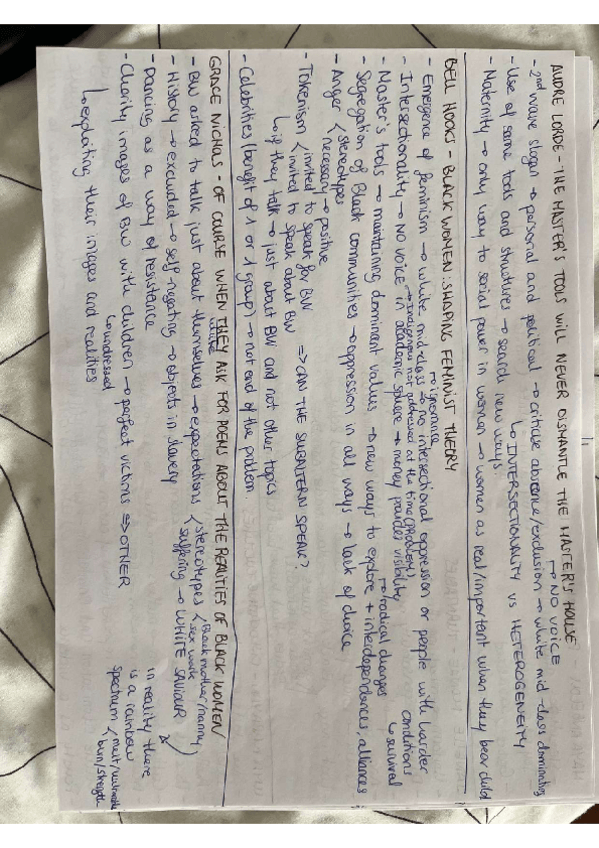 AUDRE LORDE - THE MASTER'S TOOLS WILL NEVER DISMANTLE THE MASTER'S HOUSE
↱ NO VOICE
- 2nd wave slogan → personal and political → critique absence/exclusion → white mid-class dominating
↳ INTERSECTIONALITY VS HETEROGENEITY
- Use of same tools and structures → search new ways
- Maternity → only way to social power in women → women as real/important when they bear child
BELL HOOKS - BLACK WOMEN: SHAPING FEMINIST THEORY
↱ ignorance
- Emergence of feminism → white mid-class → no intersectional oppression or people with harder conditions
↳ survival
→ Indigenous not addressed at the time
- Intersectionality → NO voice in academic sphere → money provides visibility
↱ radical changes
- Master's tools → maintaining dominant values → new ways to explore + interdependences, alliances
- Segregation of Black communities → oppression in all ways → lack of choice
- Anger < stereotypes
necessary → positive
- Tokenism < invited to speak for BW
invited to speak about BW
⇒ CAN THE SUBALTERN SPEAK?
↳ if they talk → just about BW and not other topics
- Celebrities (benefit of 1 or 1 group) → not end of the problem
GRACE NICHOLS - OF COURSE WHEN THEY ASK FOR POEMS ABOUT THE REALITIES OF BLACK WOMEN
- BW asked to talk just about themselves → expectations < stereotypes < Black mother/nanny
sex work
suffering → WHITE SAVIOUR
- History → excluded → self-negating → objects in slavery
- Dancing as a way of resistance
in reality there is a rainbow spectrum
- Charity images of BW with children → perfect victims ⇒ OTHER
↳ undressed
↳ exploiting their images and realities